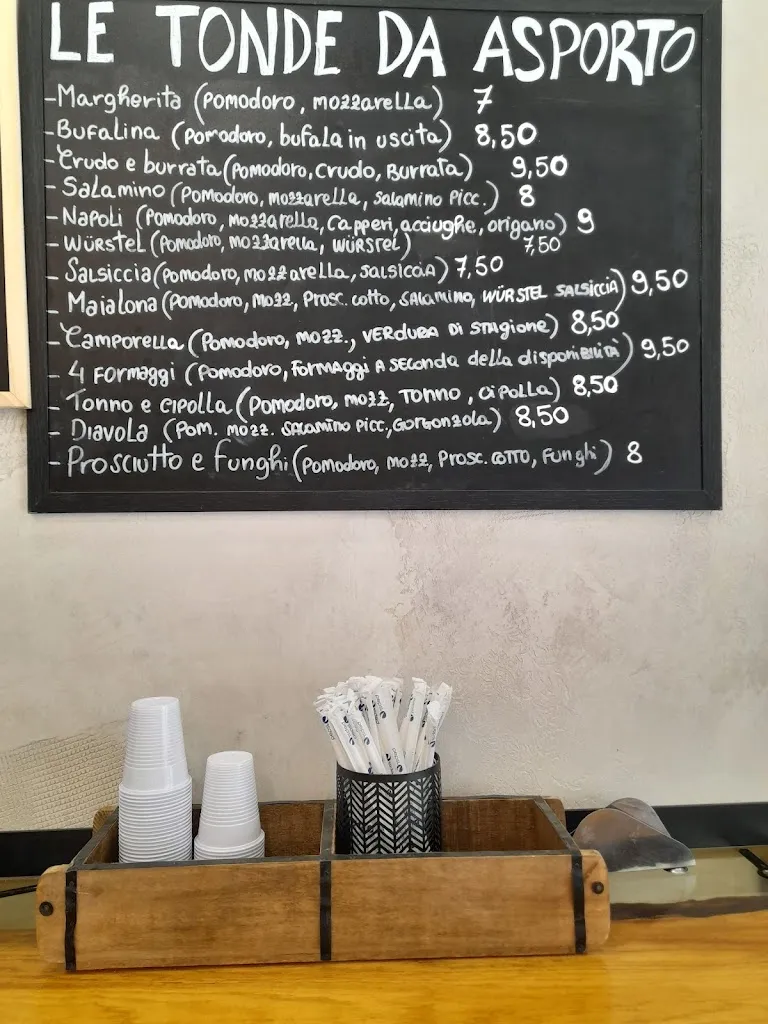 LE TONDE DA ASPORTO
-Margherita (pomodoro, mozzarella) 7
-Bufalina (pomodoro, bufala in uscita) 8,50
-Crudo e burrata (pomodoro, crudo, burrata) 9,50
-Salamino (pomodoro, mozzarella, salamino picc.) 8
-Napoli (pomodoro, mozzarella, capperi, acciughe, origano) 9
-Würstel (pomodoro, mozzarella, würstel) 7,50
-Salsiccia (pomodoro, mozzarella, salsiccia) 7,50
-Maialona (pomodoro, mozz, prosc. cotto, salamino, würstel salsiccia) 9,50
-Camporella (pomodoro, mozz., verdura di stagione) 8,50
-4 formaggi (pomodoro, formaggi a seconda della disponibilità) 9,50
-Tonno e cipolla (pomodoro, mozz, tonno, cipolla) 8,50
-Diavola (pom. mozz. salamino picc., gorgonzola) 8,50
-Prosciutto e funghi (pomodoro, mozz, prosc. cotto, funghi) 8